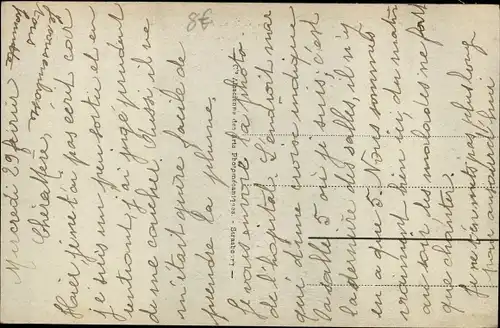 Mercredi 29 février
Chère Mère,
Hier je ne t'ai pas écrit car
je suis un peu sortie et en
rentrant, j'ai jugé prudent
de me coucher. Aussi il ne
m'était guère facile de
prendre la plume.
Je vous envoie la photo
de l'hôpital. L'endroit mar
qui d'une croix indique
la salle 5 où je suis; c'est
la dernière des salles, il n'y
en a que 5. Nous sommes
vraiment bien ici, du matin
au soir les malades ne font
que chanter.
Je ne vous mets pas plus long
pour aujourd'hui.
Je vous embrasse
tous
8€